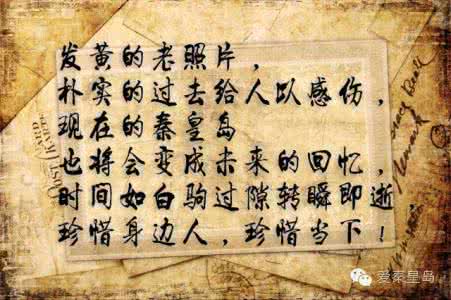 发黄的老照片，
朴实的过去给人以感伤，
现在的秦皇岛
也将会变成未来的回忆，
时间如白驹过隙转瞬即逝，
珍惜身边人，珍惜当下！
爱秦皇岛